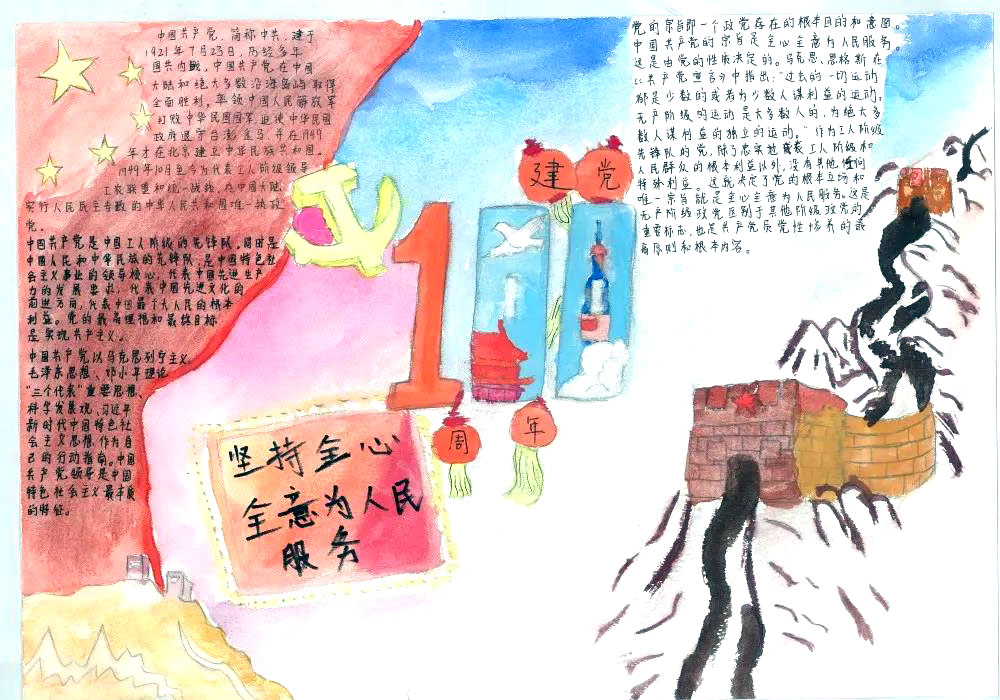 中国共产党，简称中共，建于
1921年7月23日，历经多年
国共内戦，中国共产党在中国
大陆和绝大多数沿海岛屿取得
全面胜利，率领中国人民解放军
打败中华民国国军，迫使中华民国
政府退守台澎金马，并在1949
年才在北京建立中华民族共和国。
1949年10月至今为代表工人阶级领导
工农联盟和统一战线，在中国大陆
实行人民民主专政的中华人民共和国唯一执政
党。
中国共产党是中国工人阶级的先锋队，同时是
中国人民和中华民族的先锋队，是中国特色社
会主义事业的领导核心，代表中国先进生产
力的发展要求，代表中国先进文化的
前进方向，代表中国最广大人民的根本
利益。党的最高理想和最终目标
是实现共产主义。
中国共产党以马克思列宁主义、
毛泽东思想、邓小平理论、
“三个代表”重要思想、
科学发展观、习近平
新时代中国特色社
会主义思想，作为自
己的行动指南。中国
共产党领导是中国
特色社会主义最本质
的特征。
建党
100
周年
坚持全心
全意为人民
服务
党的宗旨即一个政党存在的根本目的和意图。
中国共产党的宗旨是全心全意为人民服务。
这是由党的性质决定的。马克思、恩格斯在
《共产党宣言》中指出：“过去的一切运动
都是少数的或者为少数人谋利益的运动。
无产阶级的运动是大多数人的，为绝大多
数人谋利益的独立的运动。”作为工人阶级
先锋队的党，除了忠实地代表工人阶级和
人民群众的根本利益以外，没有其他任何
特殊利益。这就决定了党的根本立场和
唯一宗旨就是全心全意为人民服务。这是
无产阶级政党区别于其他阶级政党的
重要标志，也是共产党员党性培养的最
高原则和根本内容。